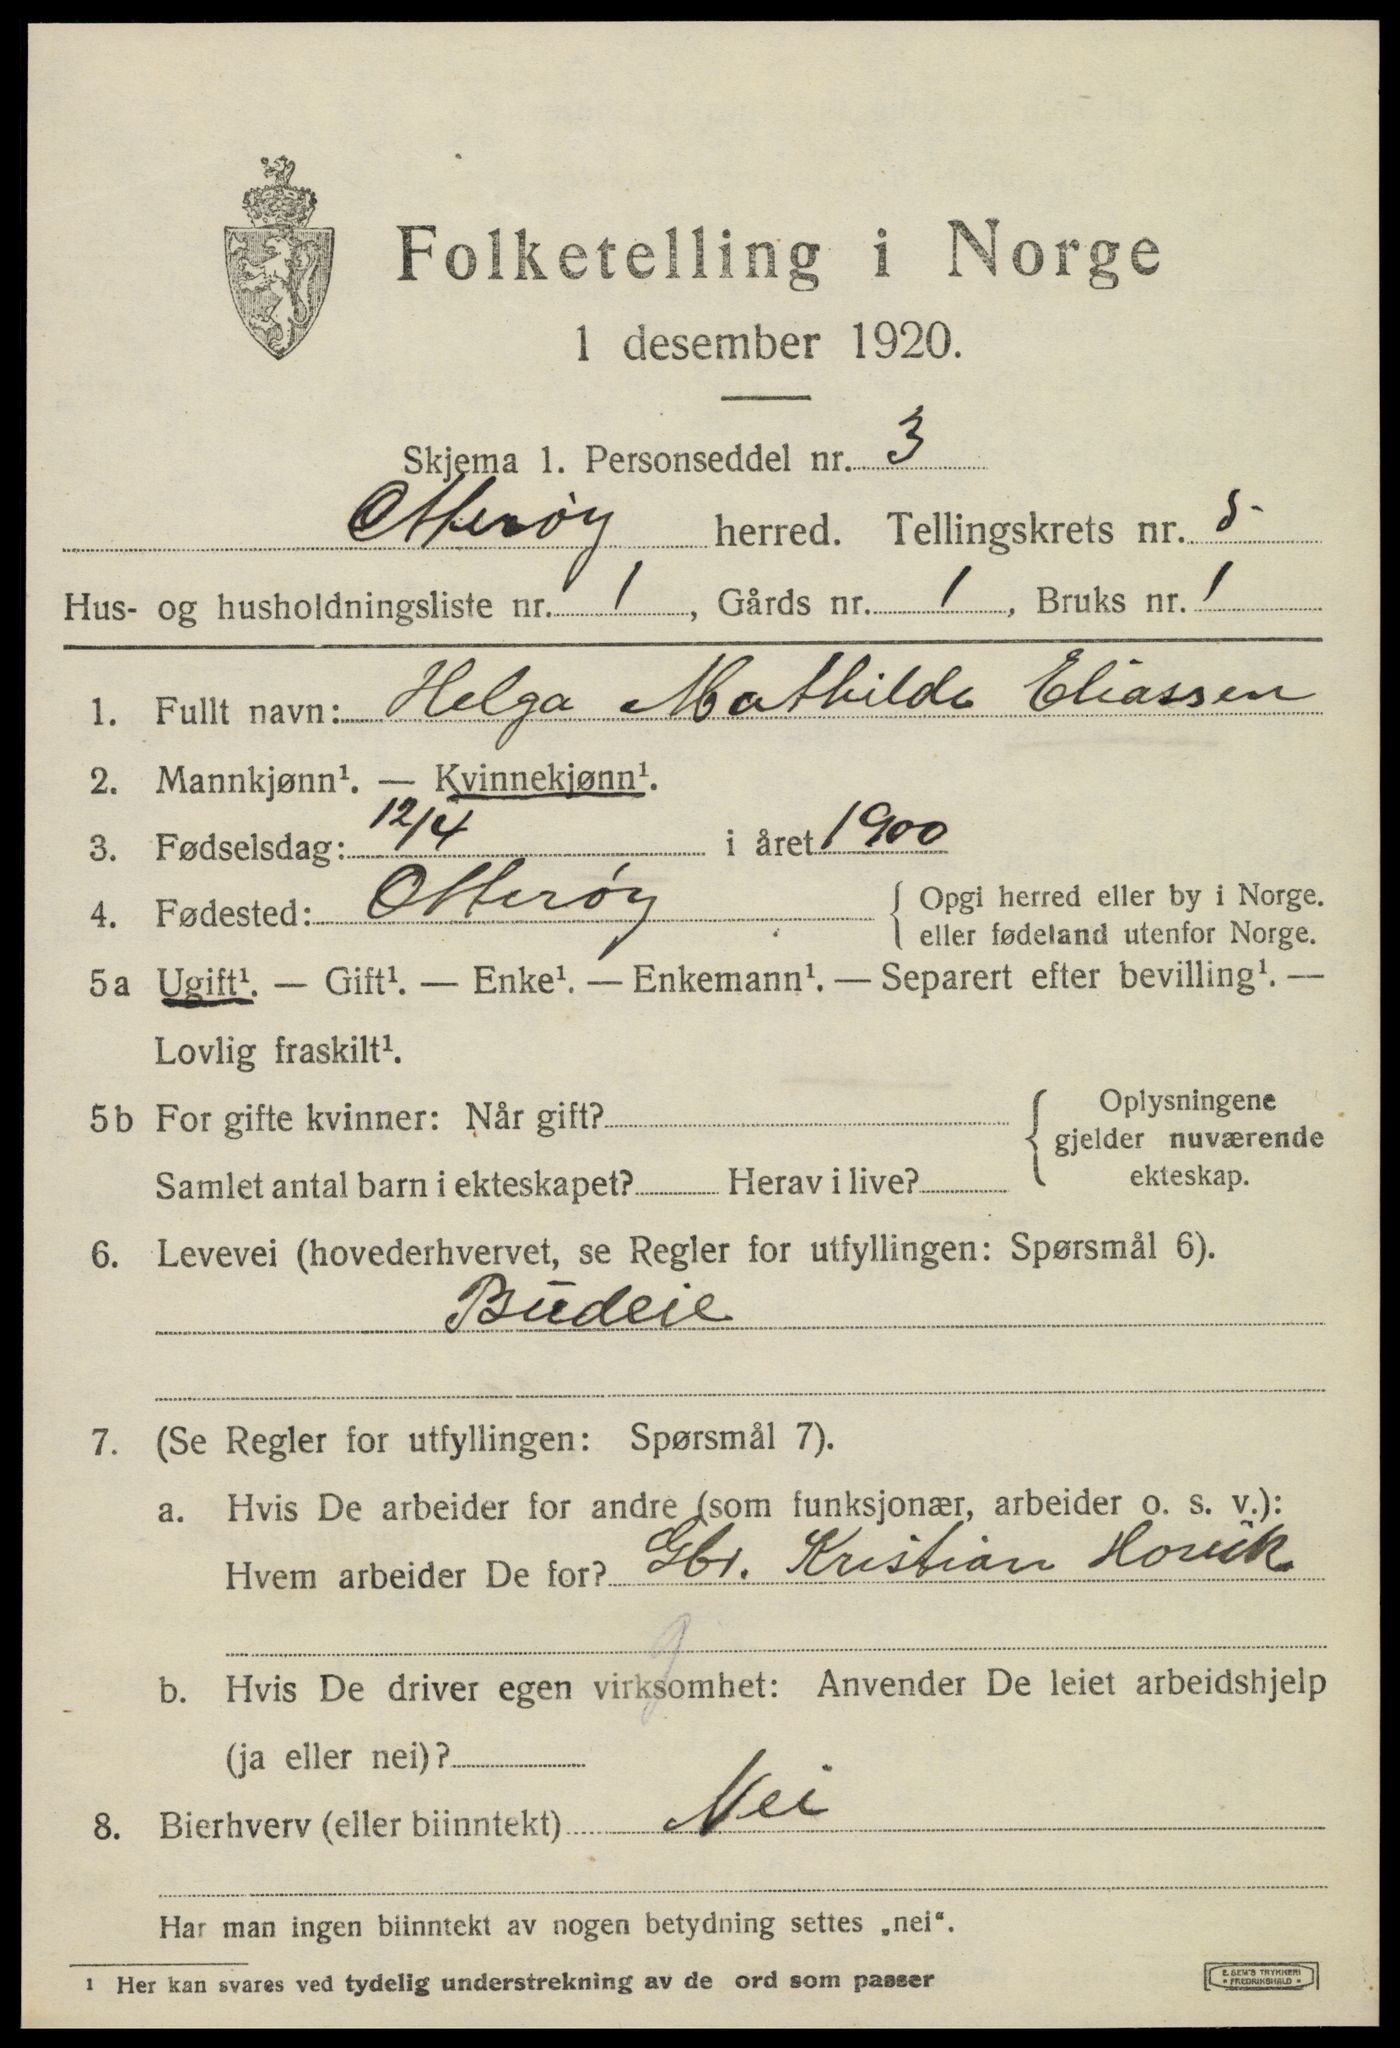 Folketelling i Norge
1 desember 1920.
Skjema 1. Personseddel nr. 3
Otterøy herred. Tellingskrets nr. 5
Hus- og husholdningsliste nr. 1, Gårds nr. 1, Bruks nr. 1
1. Fullt navn: Helga Mathilde Eliassen
2. Mannkjønn¹. — Kvinnekjønn¹.
3. Fødselsdag: 12/4 i året 1900
4. Fødested: Otterøy { Opgi herred eller by i Norge.
eller fødeland utenfor Norge.
5a Ugift¹. — Gift¹. — Enke¹. — Enkemann¹. — Separert efter bevilling¹. —
Lovlig fraskilt¹.
5b For gifte kvinner: Når gift? { Oplysningene
gjelder nuværende
Samlet antal barn i ekteskapet? Herav i live? ekteskap.
6. Levevei (hovederhvervet, se Regler for utfyllingen: Spørsmål 6).
Budeie
7. (Se Regler for utfyllingen: Spørsmål 7).
a. Hvis De arbeider for andre (som funksjonær, arbeider o. s. v.):
Hvem arbeider De for? Gbr. Kristian Hovik
b. Hvis De driver egen virksomhet: Anvender De leiet arbeidshjelp
(ja eller nei)?
8. Bierhverv (eller biinntekt) Nei
Har man ingen biinntekt av nogen betydning settes „nei“.
¹ Her kan svares ved tydelig understrekning av de ord som passer
E. SEM'S TRYKKERI
FREDRIKSHALD